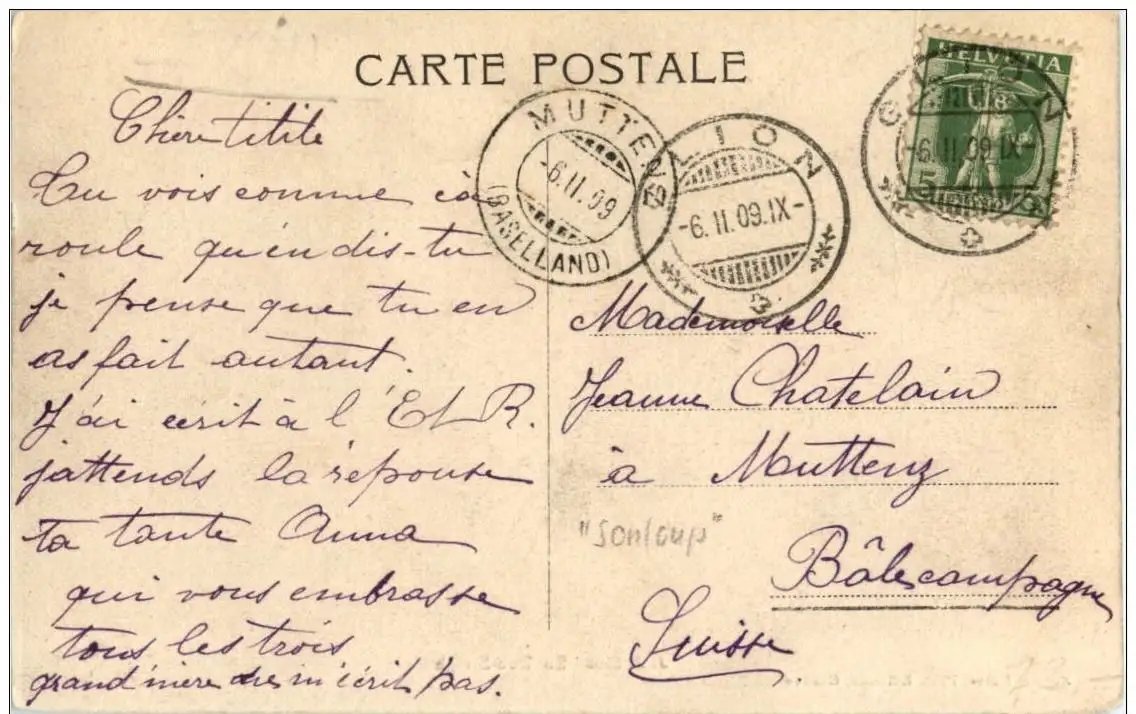 CARTE POSTALE
Chère titite
Tu vois comme ça
roule qu'en dis-tu
je pense que tu en
as fait autant.
J'ai écrit à l'E L R.
j'attends la réponse
ta tante Anna
qui vous embrasse
tous les trois
grand'mère ne m'écrit pas.
MUTTENZ
-6.II.09
(BASELLAND)
GLION
-6.II.09.IX-
HELVETIA
5
GLION
-6.II.09.IX-
Mademoiselle
Jeanne Chatelain
à Muttenz
"Sonloup"
Bâle campagne
Suisse